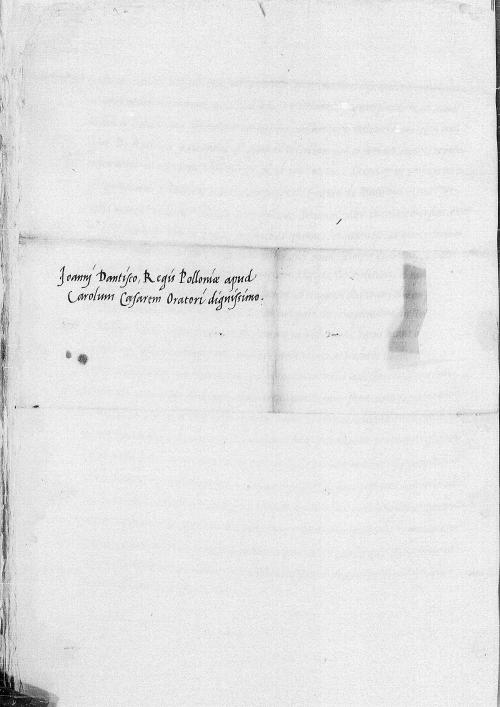 Joanni Dantisco, Regis Polloniæ apud
Carolum Cæsarem Oratori dignissimo.